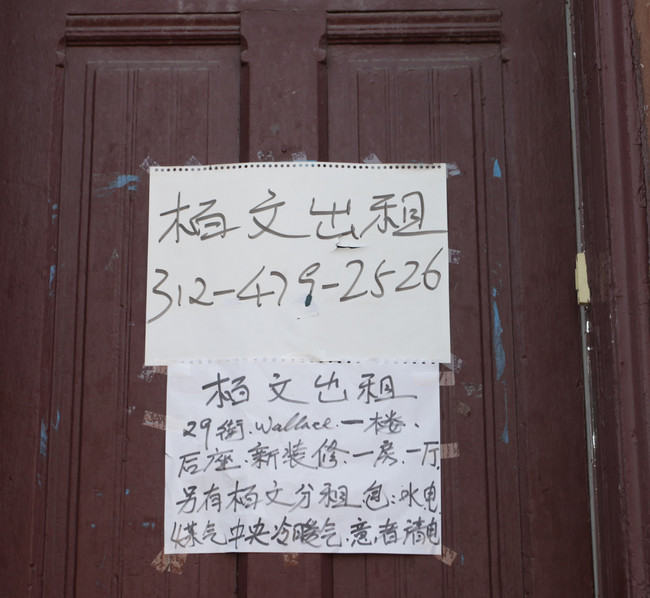 柏文出租
312-479-2526
柏文出租
29街.Wallace.一楼.
后座.新装修.一房.一厅
另有柏文分租包:水电
煤气中央冷暖气.意者请电